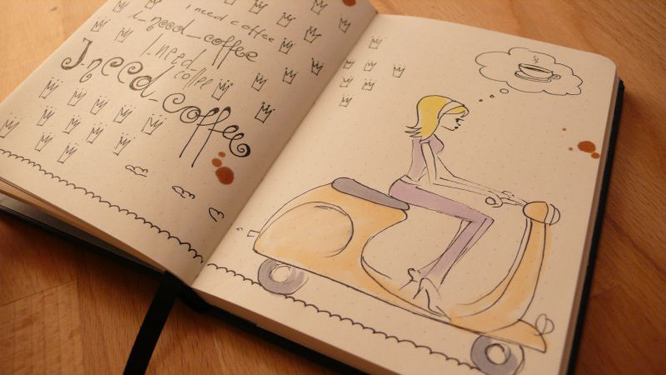 I need coffee
I-need-coffee
I need
coffee
I-need-coffee